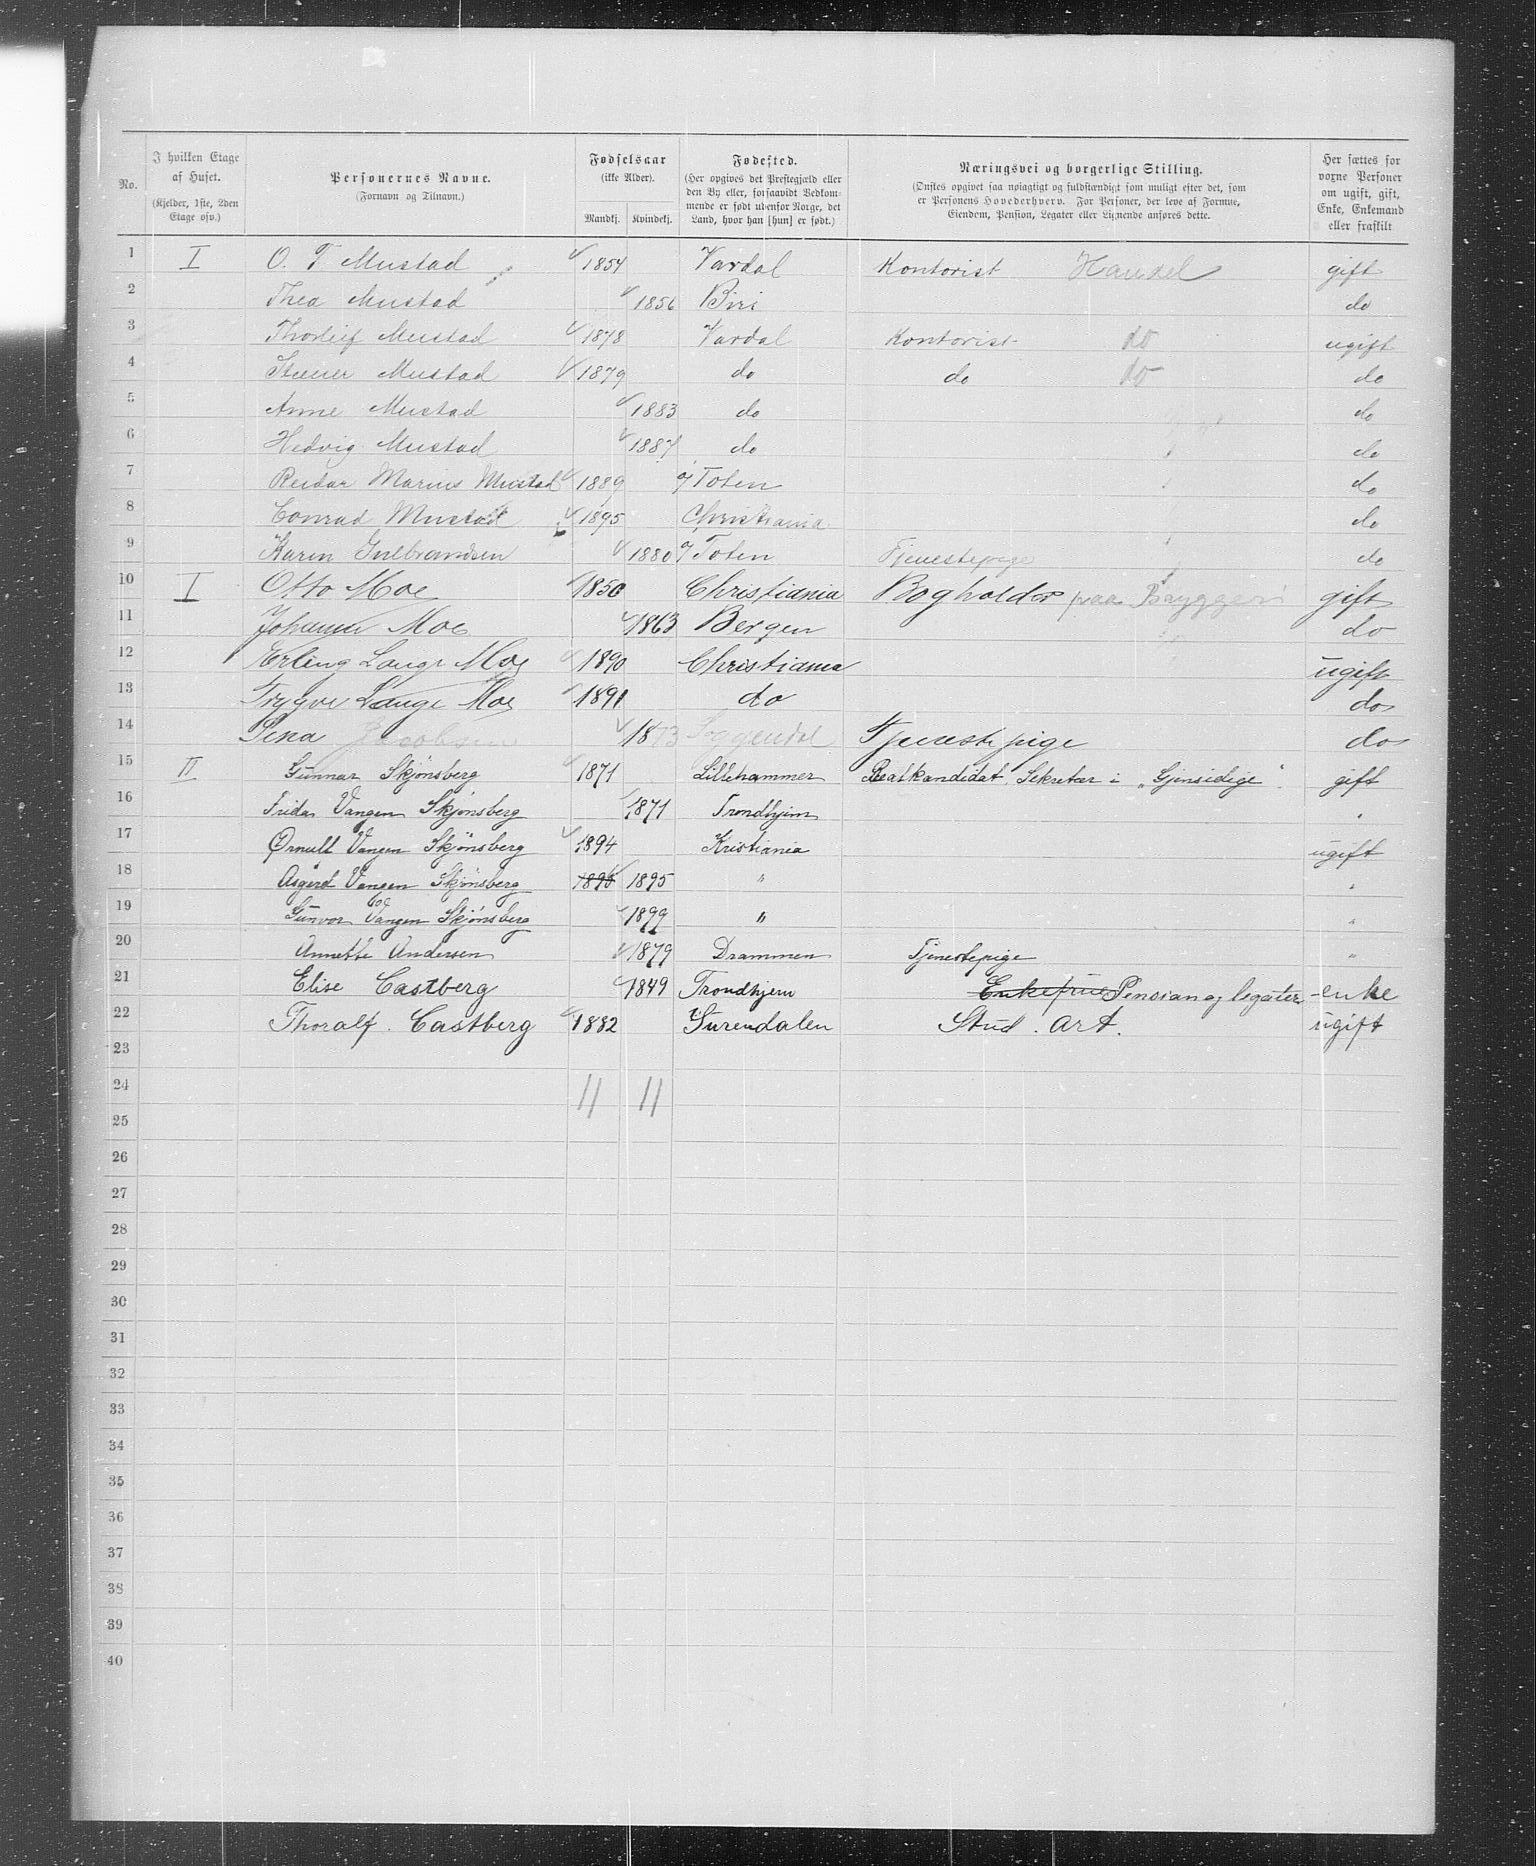 No. | I hvilken Etage af Huset. (Kjelder, 1ste, 2den Etage osv.) | Personernes Navne. (Fornavn og Tilnavn.) | Fødselsaar (ikke Alder). Mandkj. Kvindekj. | Fødested. (Her opgives det Prestegjæld eller den By eller, forsaavidt Vedkommende er født udenfor Norge, det Land, hvor han [hun] er født.) | Næringsvei og borgerlige Stilling. (Ønskes opgivet saa nøiagtigt og fuldstændigt som muligt efter det, som er Personens Hovederhverv. For Personer, der leve af Formue, Eiendom, Pension, Legater eller Lignende anføres dette.) | Her sættes for vorne Personer om ugift, gift, Enke, Enkemand eller fraskilt
1 I O. T. Mustad 1854 Vardal Kontorist Handel gift
2 Thea Mustad 1856 Biri do
3 Thorleif Mustad 1878 Vardal Kontorist do ugift
4 Mustad 1879 do do do do
5 Anne Mustad 1883 do do
6 Hedvig Mustad 1887 do do
7 Reidar Marius Mustad 1889 Toten do
8 Conrad Mustad 1895 Christiania do
9 Karen Gulbrandsen 1880 Toten Tjenestepige do
10 I Otto Moe 1850 Christiania Bogholder paa Bryggeri gift
11 Johanne Moe 1863 Bergen do
12 Erling Lange Moe 1890 Christiania ugift
13 Trygve Lange Moe 1891 do do
14 Jacobsen 1873 Soggendal Tjenestepige do
15 II Gunnar Skjønsberg 1871 Lillehammer Realkandidat, Sekretær i „Gjensidige". gift
16 Frida Vangen Skjønsberg 1871 Trondhjem "
17 Ørnulf Vangen Skjønsberg 1894 Kristiania ugift
18 Asgerd Vangen Skjønsberg 1895 1895 " "
19 Gunvor Vangen Skjønsberg 1899 " "
20 Annette Andersen 1879 Drammen Tjenestepige "
21 Elise Castberg 1849 Trondhjem Enkefrue Pension og legater enke
22 Thoralf Castberg 1882 Surendalen Stud. art. ugift
23
24 11 11
25
26
27
28
29
30
31
32
33
34
35
36
37
38
39
40